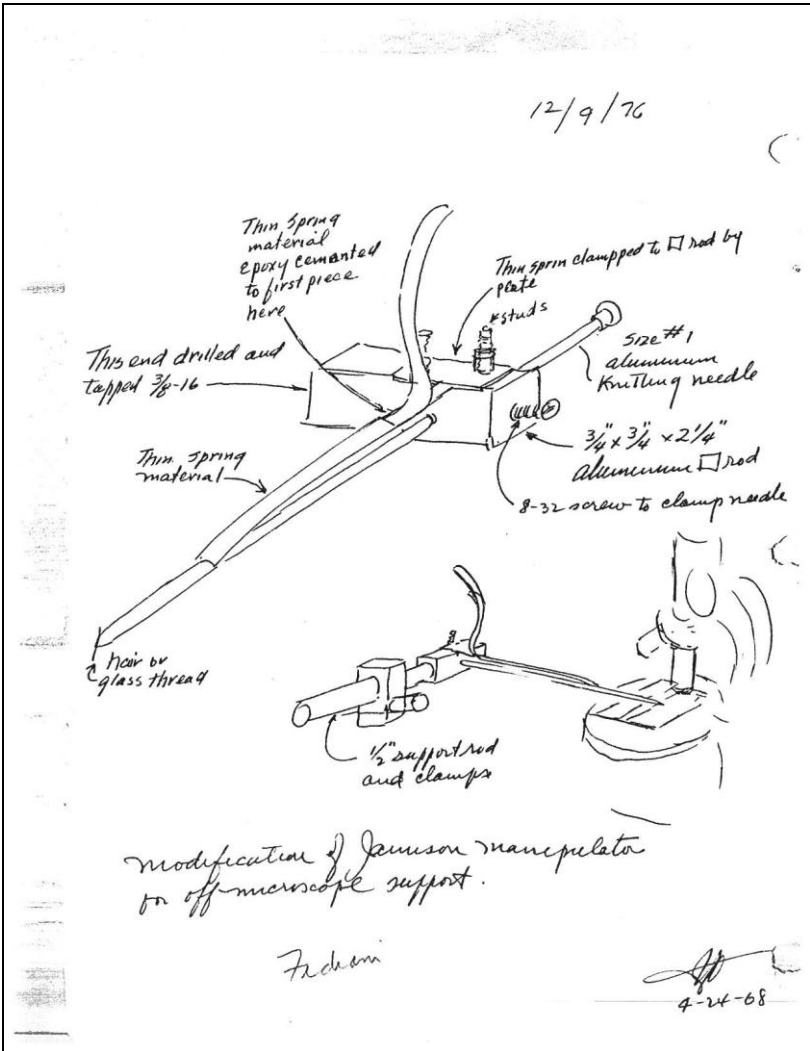 12/9/76
Thin spring
material
epoxy cemented
to first piece
here
Thin sprin clampped to □ rod by
plate
studs
Size #1
aluminum
Knitting needle
This end drilled and
tapped 3/8-16
3/4" x 3/4" x 2 1/4"
aluminum □ rod
8-32 screw to clamp needle
Thin spring
material
hair or
glass thread
1/2" support rod
and clamps
modification of Jamison manipulator
for off-microscope support.
4-24-68